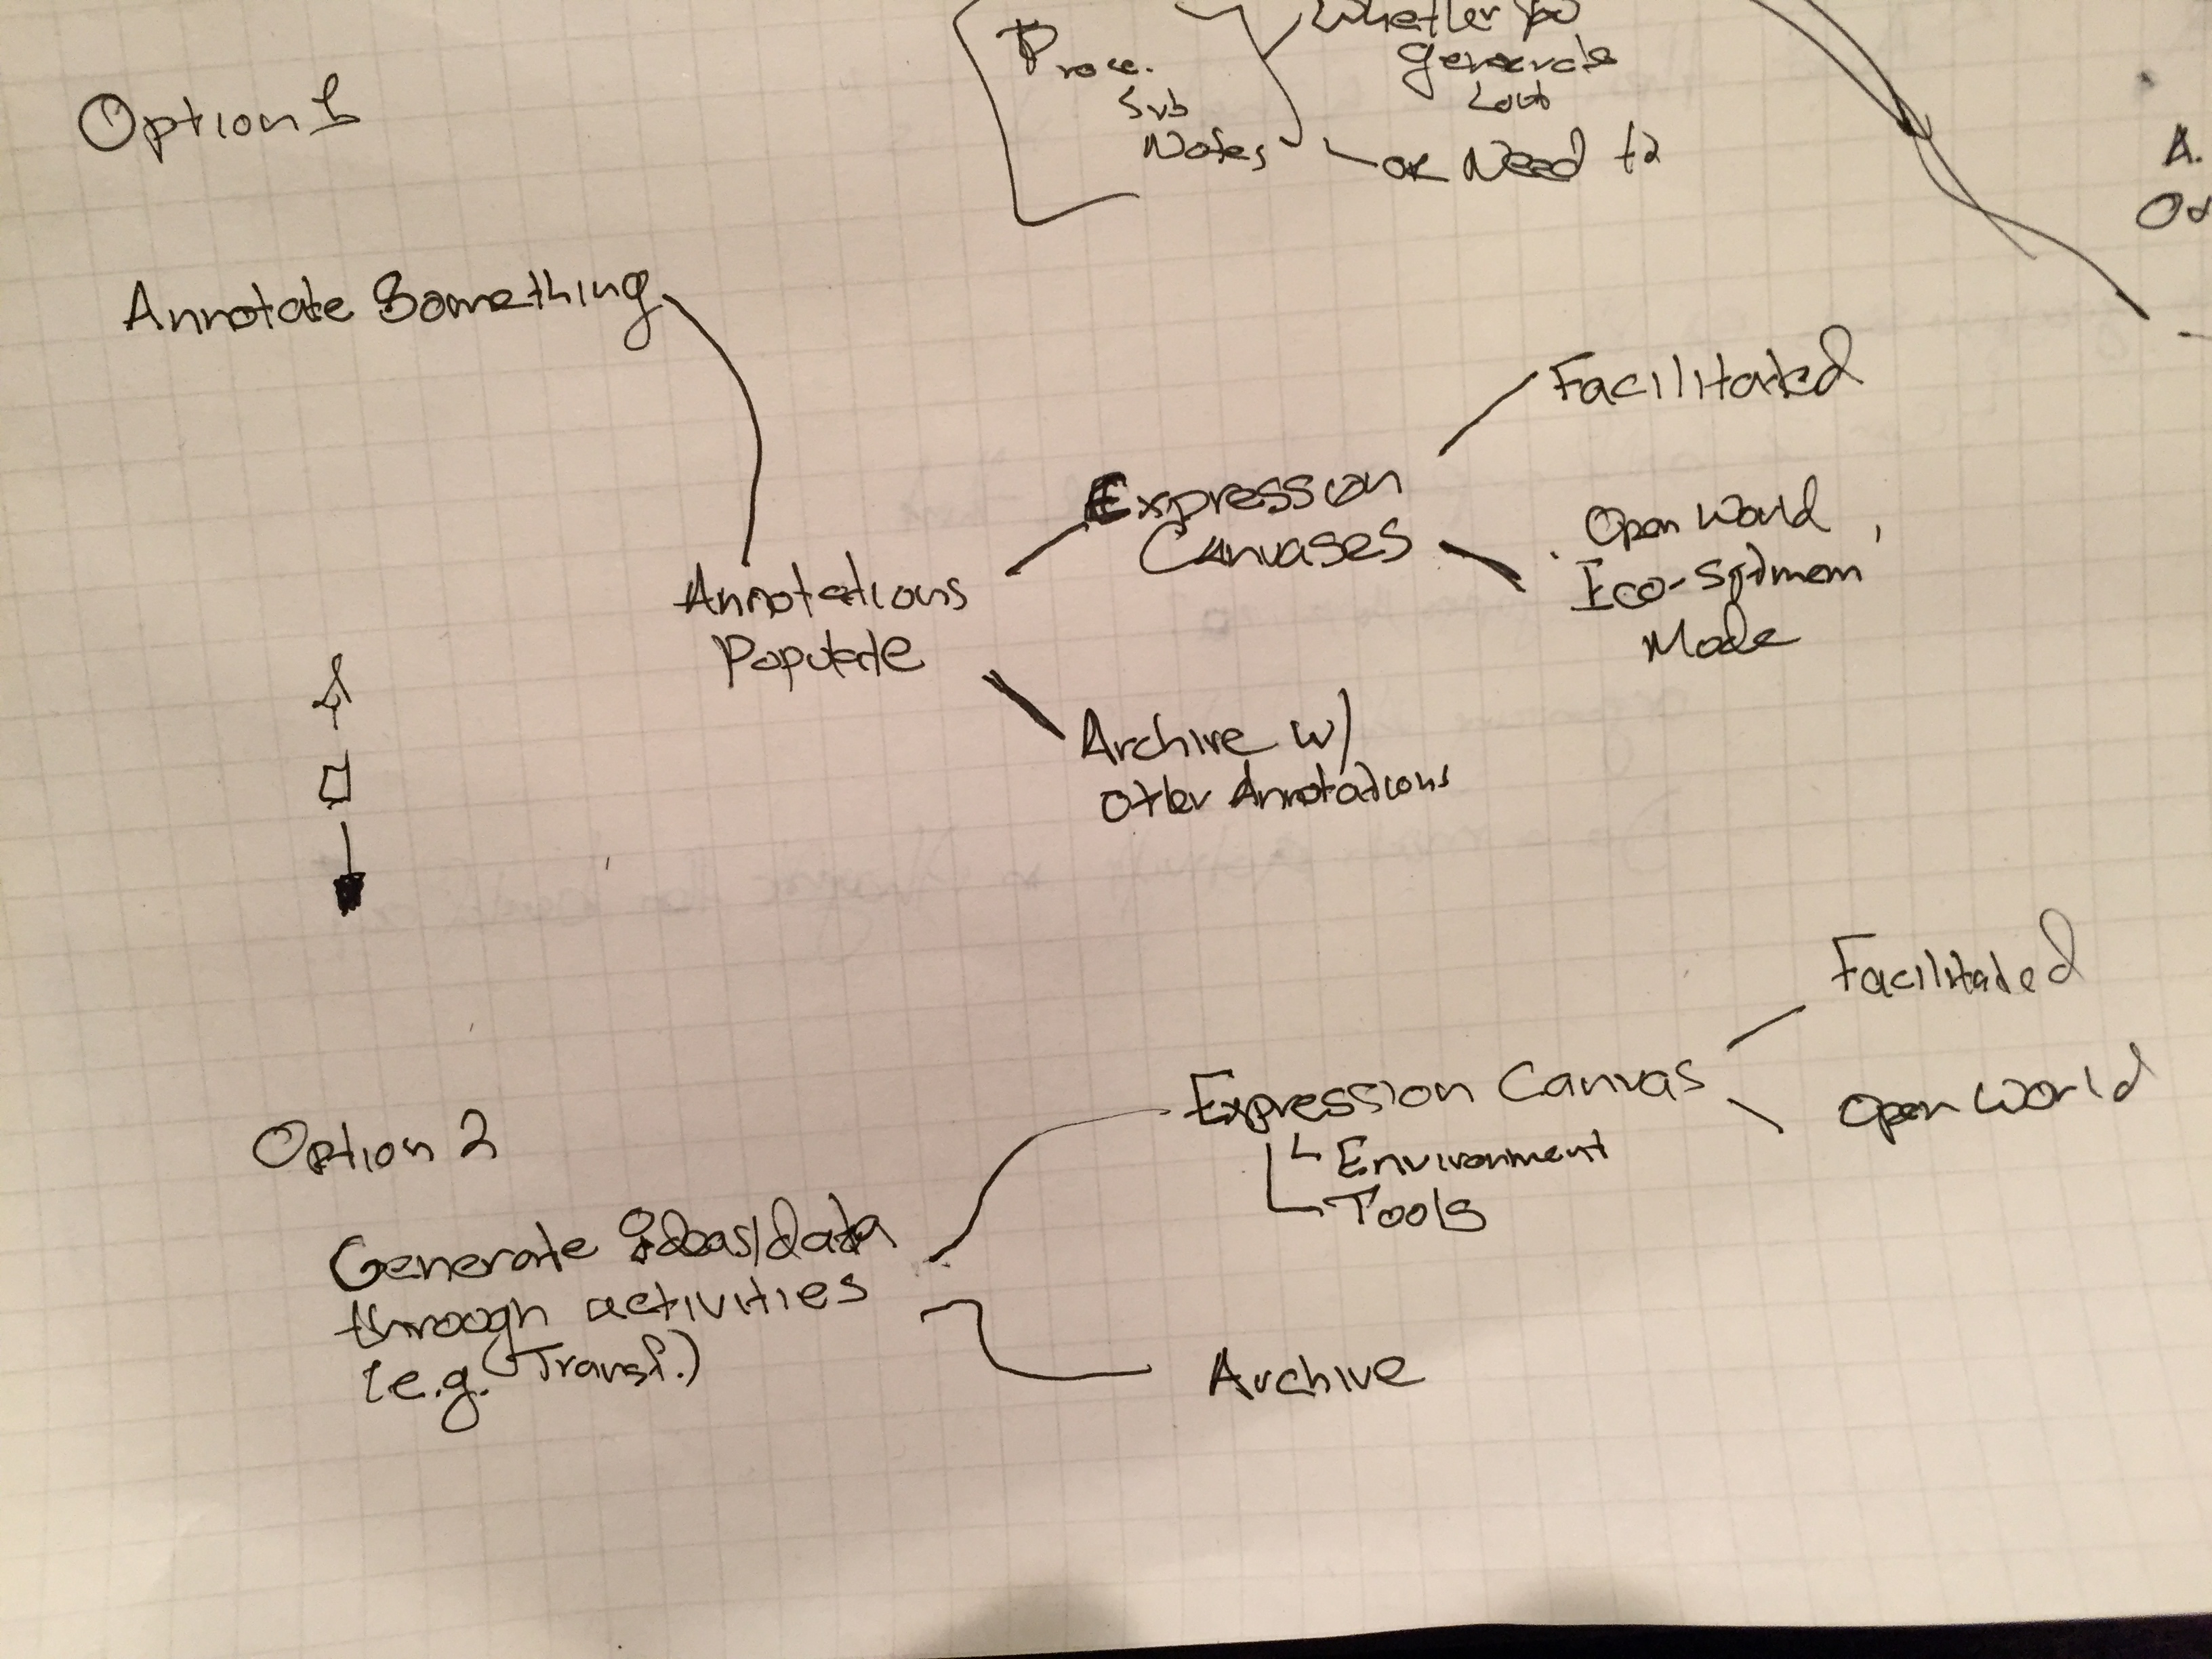 Whether you
Proce.
generate
Sub
Notes
or Need to
A.
Option 1
Annotate Something
Facilitated
Expression
Canvases
Open World
Eco-Systmem
Mode
Annotations
Populate
Archive w/
other Annotations
Facilitated
Expression Canvas
Open World
Environment
Tools
Option 2
Generate ideas/data
through activities
(e.g. Transf.)
Archive